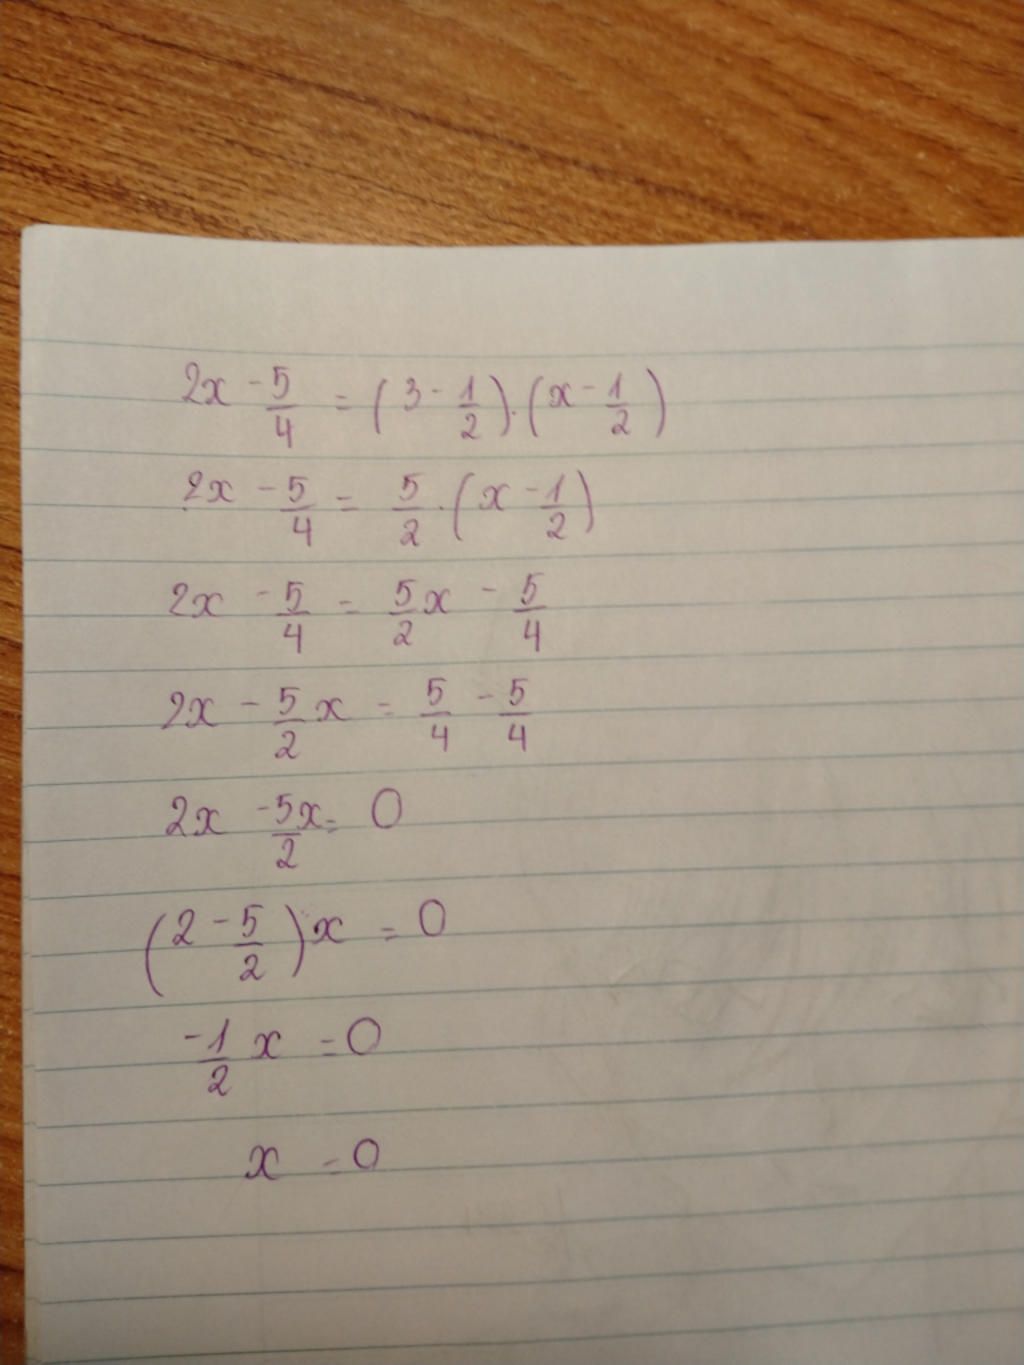 2x - 5/4 = (3 - 1/2).(x - 1/2)
2x - 5/4 = 5/2 .(x - 1/2)
2x - 5/4 = 5/2 x - 5/4
2x - 5/2 x = 5/4 - 5/4
2x - 5x/2 = 0
(2 - 5/2)x = 0
-1/2 x = 0
x = 0